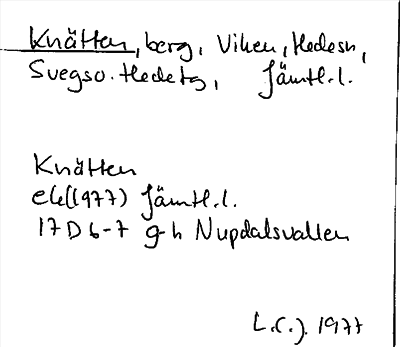 Knätten, berg, Viken, Hedesn,
Svegso. Hedetg, Jämtl.l.
Knätten
ek(1977) Jämtl.l.
17D 6-7 g-h Nupdalsvallen
L.C.J. 1977